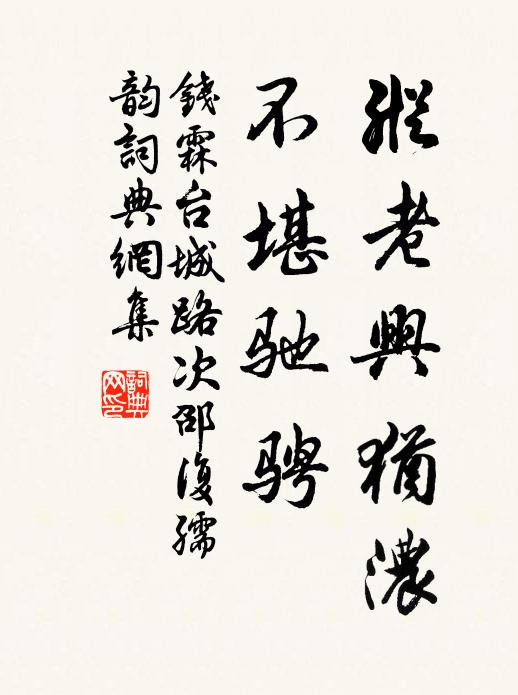 縱老興猶濃
不堪馳騁
錢霖台城路次邵復孺
韵詞典網集
詞典
网印